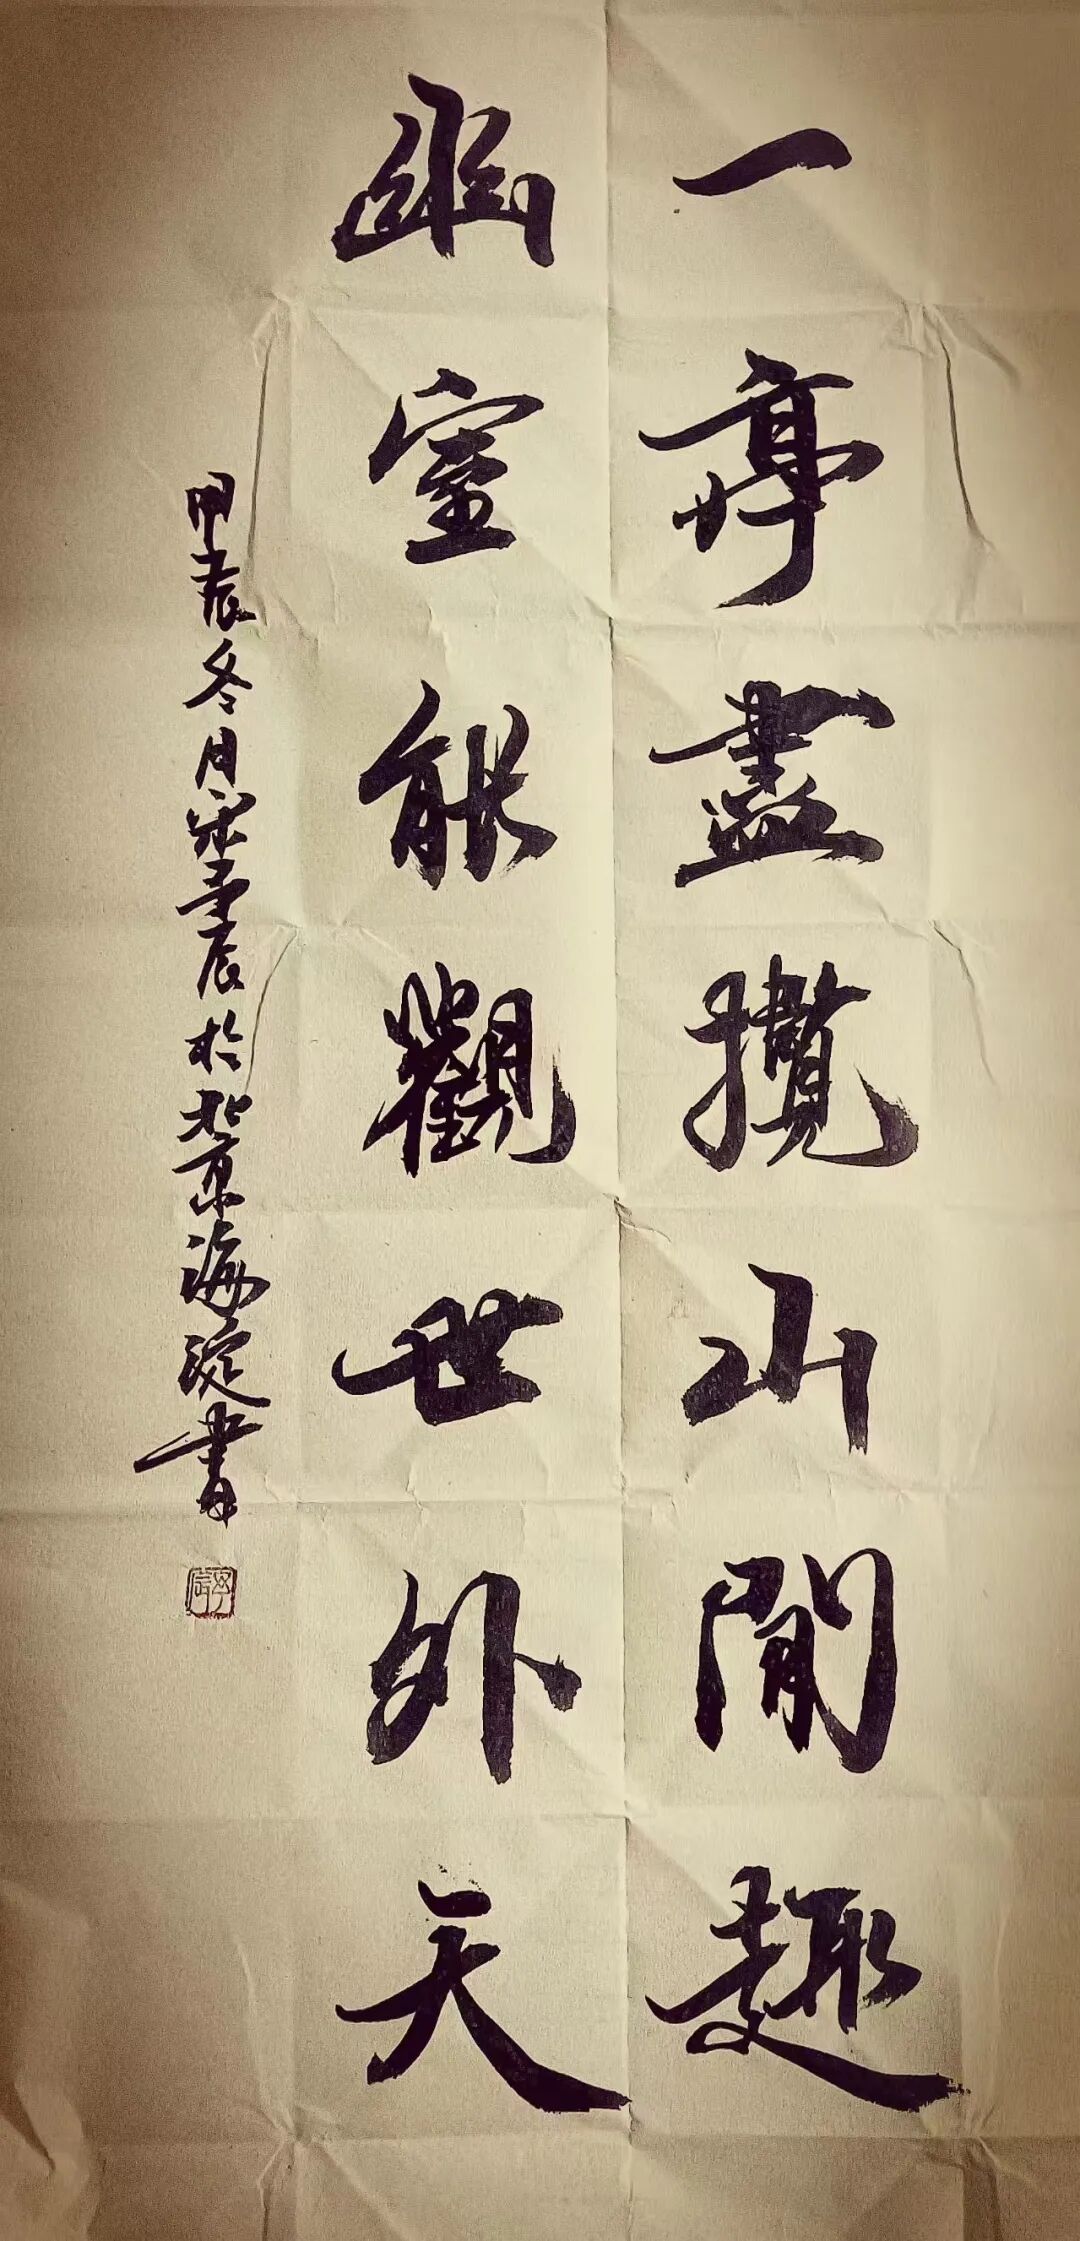 一亭盡攬山間趣
幽室能觀世外天
甲辰冬月宋尋辰於北京海淀書